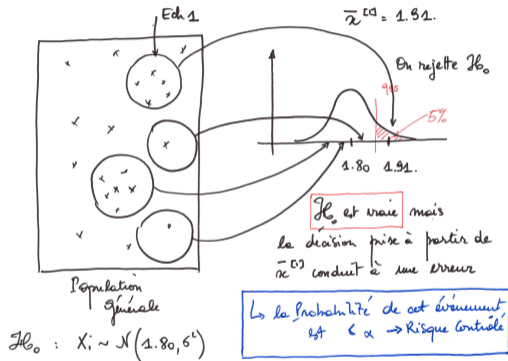 Ech 1
x̄⁽¹⁾ = 1.91.
On rejette H₀
5%
1.80 1.91.
H₀ est vraie mais
la décision prise à partir de
x̄⁽¹⁾ conduit à une erreur
Population
Générale
H₀ : Xi ~ N(1.80, σ²)
↳ la Probabilité de cet événement
est ≤ α → Risque Contrôlé